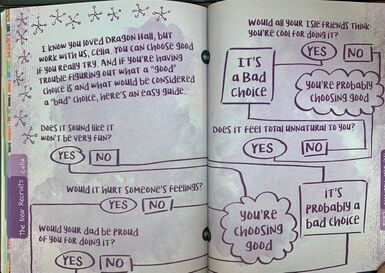 I know you loved Dragon Hall, but
work with us, Celia. You can choose good
if you really try. And if you're having
trouble figuring out what a "good"
choice is and what would be considered
a "bad" choice, here's an easy guide.
Does it sound like it
won't be very fun?
YES NO
Would it hurt someone's feelings?
YES NO
Would your dad be proud
of you for doing it?
YES NO
The New Recruits Celia
Would all your Isle friends think
you're cool for doing it?
YES NO
It's
a bad
choice
You're probably
choosing good
Does it feel total unnatural to you?
YES NO
You're
choosing
good
It's
probably a
bad choice